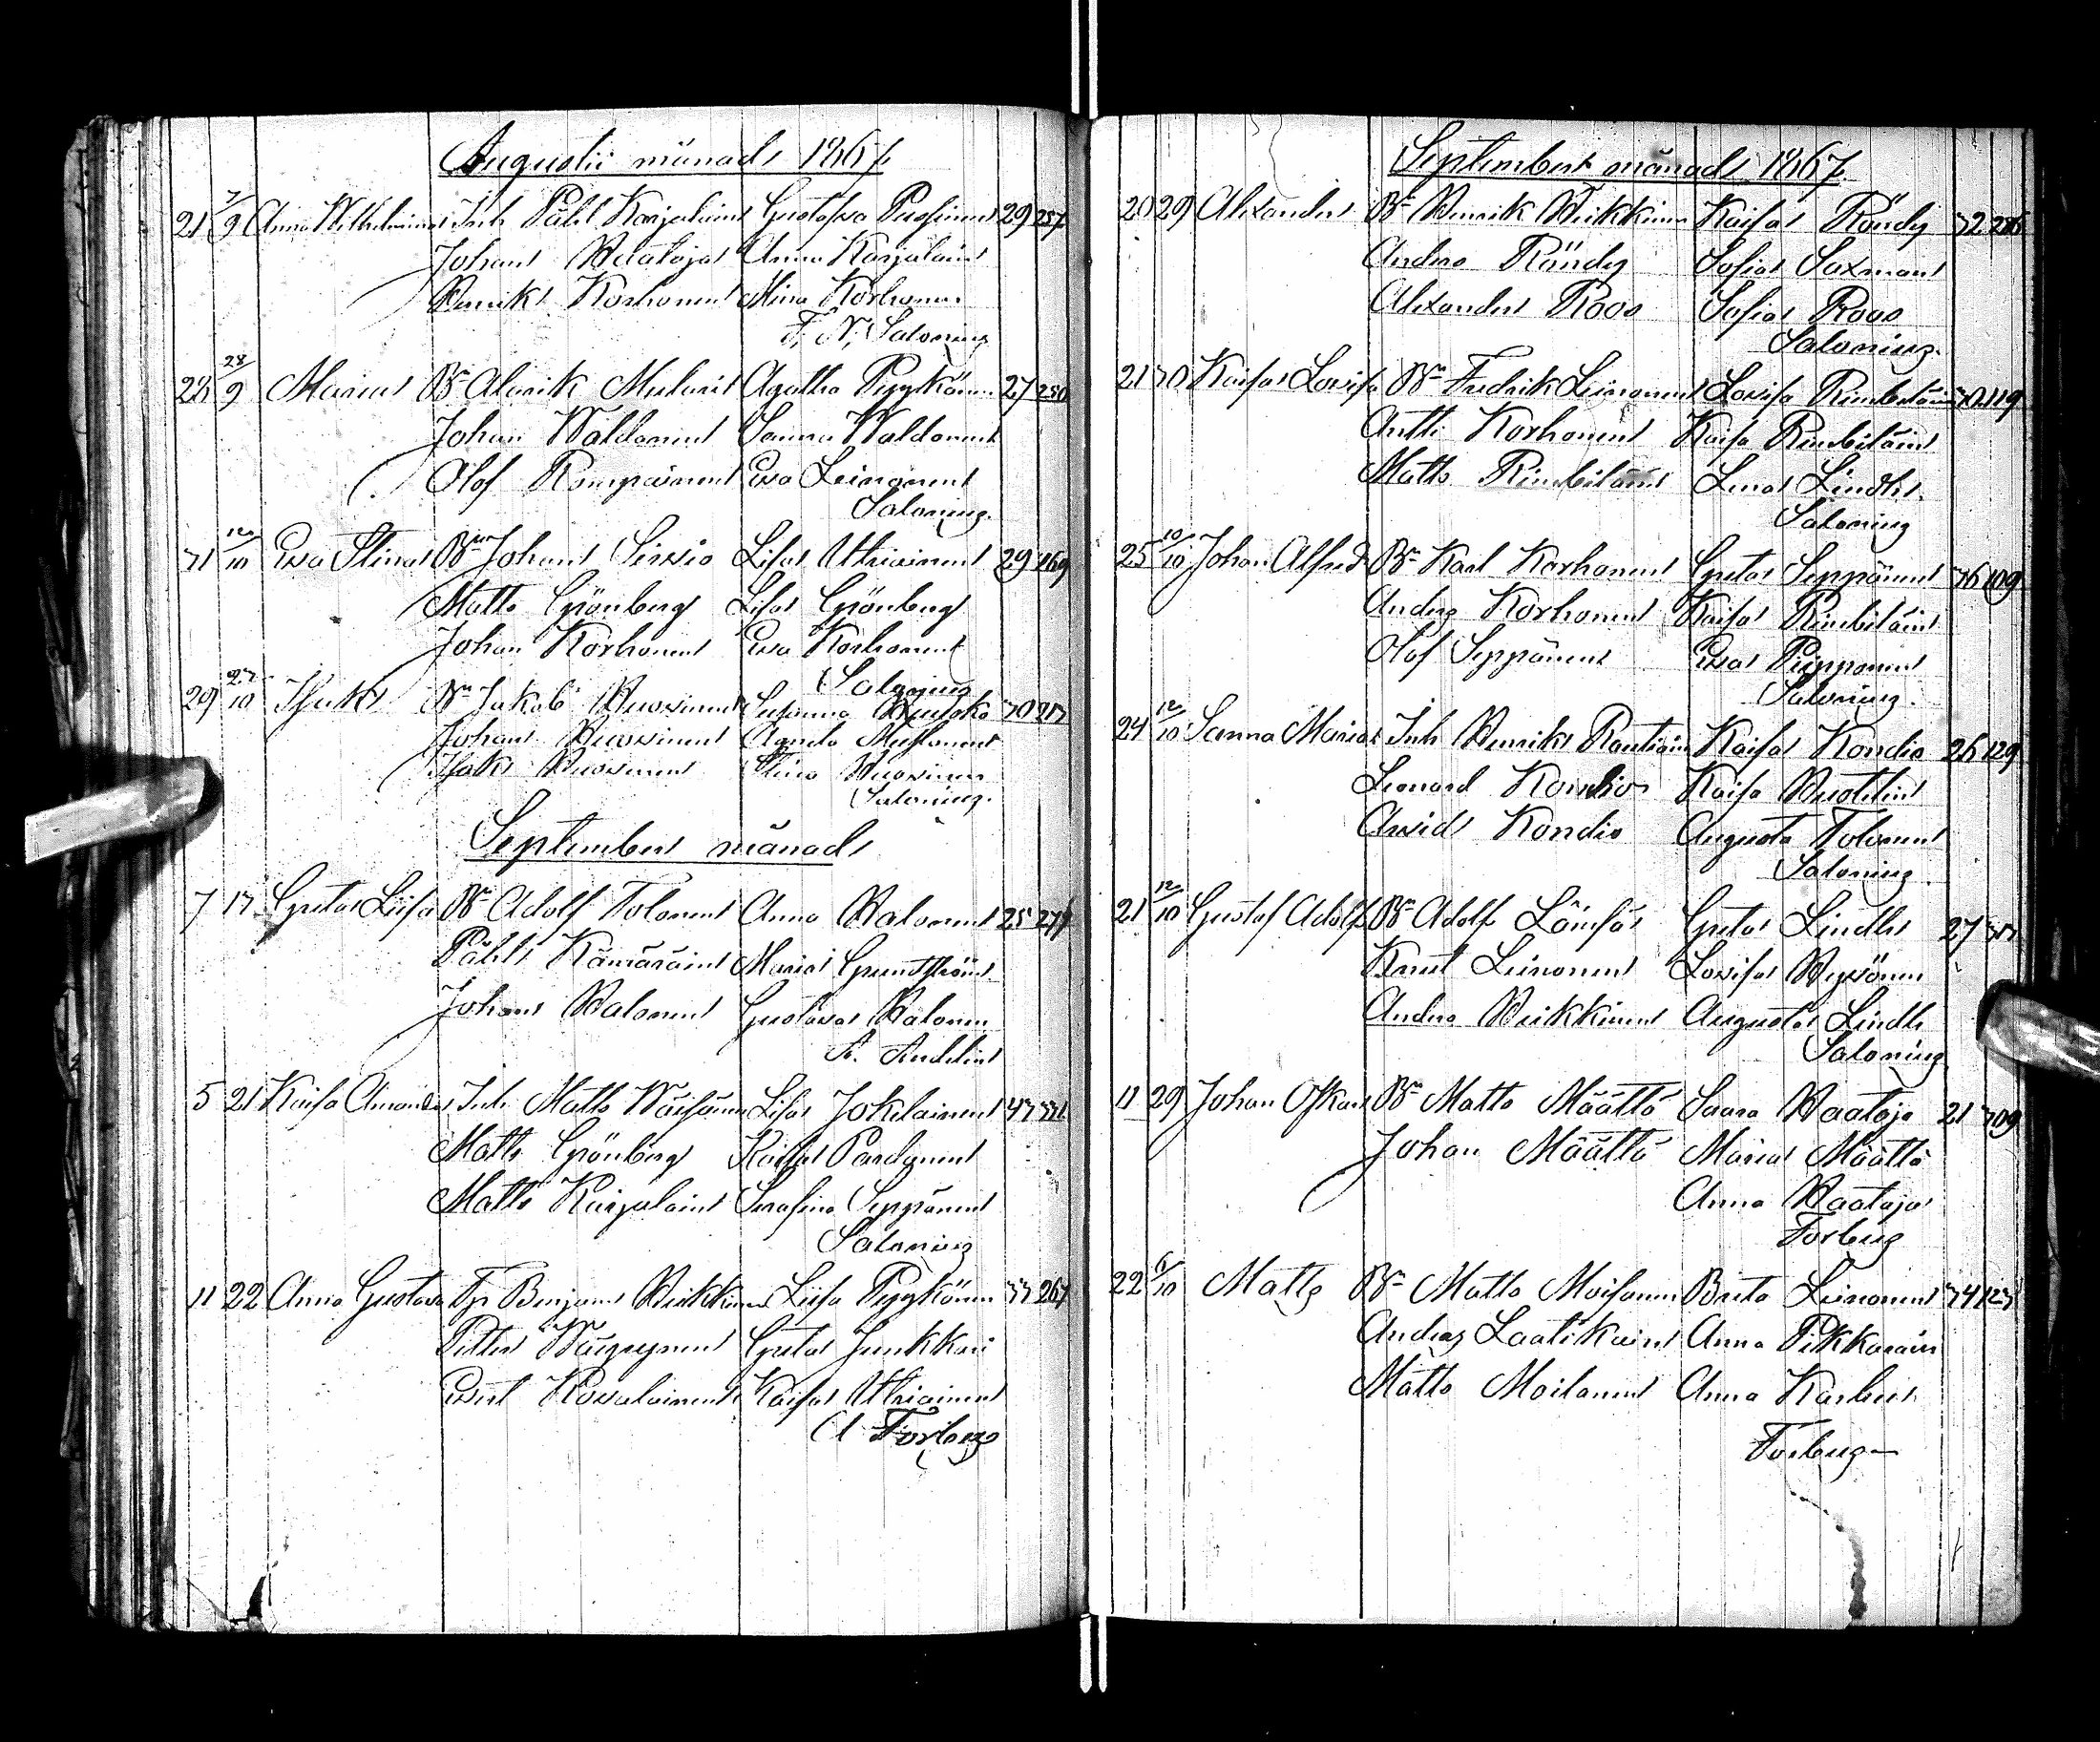 Augusti månad 1867
21 7/9 Anna Wilhelmina Inh Påhl Karjalainen Gustafva Pussinen 29 257
Johan Waataja Anna Karjalain
Henrik Korhonen Mina Korhonen
Saloning
28 28/9 Maria Bn Alarik Mulari Agatha Pyykönen 27 250
Johan Waldonen Sanna Waldonen
Olof Romppainen Eva Leinonen
Saloning.
31 12/10 Eva Stina Bn Johan Sirviö Lisa Uthriainen 29 169
Matts Grönberg Lisa Grönberg
Johan Korhonen Eva Korhonen
Saloning
29 27/10 Isak Bn Jakob Huovinen Susanna 30 313
Johan Huovinen Agneta Mustonen
Isak Huovinen Stina Huovinen
Saloning.
September månad
7 13 Greta Liisa Bn Adolf Tolonen Anna Halonen 25 274
Påhl Kämäräinen Maria
Johan Halonen Gustava Halonen
5 21 Kaisa Amanda Inh Matts Wäisänen Lisa Jokelainen 43 331
Matts Grönberg Kaisa Pardanen
Matts Karjalain Serafina Seppänen
Saloning
11 22 Anna Gustava Tp Benjam Heikkinen Liisa Pyykönen 33 267
Petter Greta Junkkari
Evert Kovalainen Kaisa Uthriainen
A Forberg
September månad 1867.
20 29 Alexander Bn Henrik Heikkinen Kaisa Rändy 32 286
Anders Rändy Sofia Saxman
Alexander Roos Sofia Roos
Saloning.
21 30 Kaisa Lovisa Bn Fredrik Leinonen Lovisa Rimbiläinen 30 119
Antti Korhonen Kaisa Rimbiläin
Matts Rimbiläin Lena Lindh
Saloning
25 10/10 Johan Alfred Bn Karl Korhonen Greta Seppänen 36 109
Anders Korhonen Kaisa Rimbiläin
Olof Seppänen Eva Piipponen
Saloning.
24 12/10 Sanna Maria Inh Henrik Rautiain Kaisa Kondio 26 129
Leonard Kondio Kaisa
Arvid Kondio Augusta Tolonen
Saloning.
21 12/10 Gustaf Adolf Bn Adolf Lämsä Greta Lindh 27
Knut Leinonen Lovisa Hyvönen
Anders Heikkinen Augusta Lindh
Saloning
11 29 Johan Oskar Bn Matts Määttä Saara Waataja 21 309
Johan Määttä Maria Määttä
Anna Waataja
Forberg
22 6/10 Matts Bn Matts Moisanen Brita Leinonen 34 123
Anders Laatikain Anna Pikkarain
Matts Moilanen Anna
Forberg